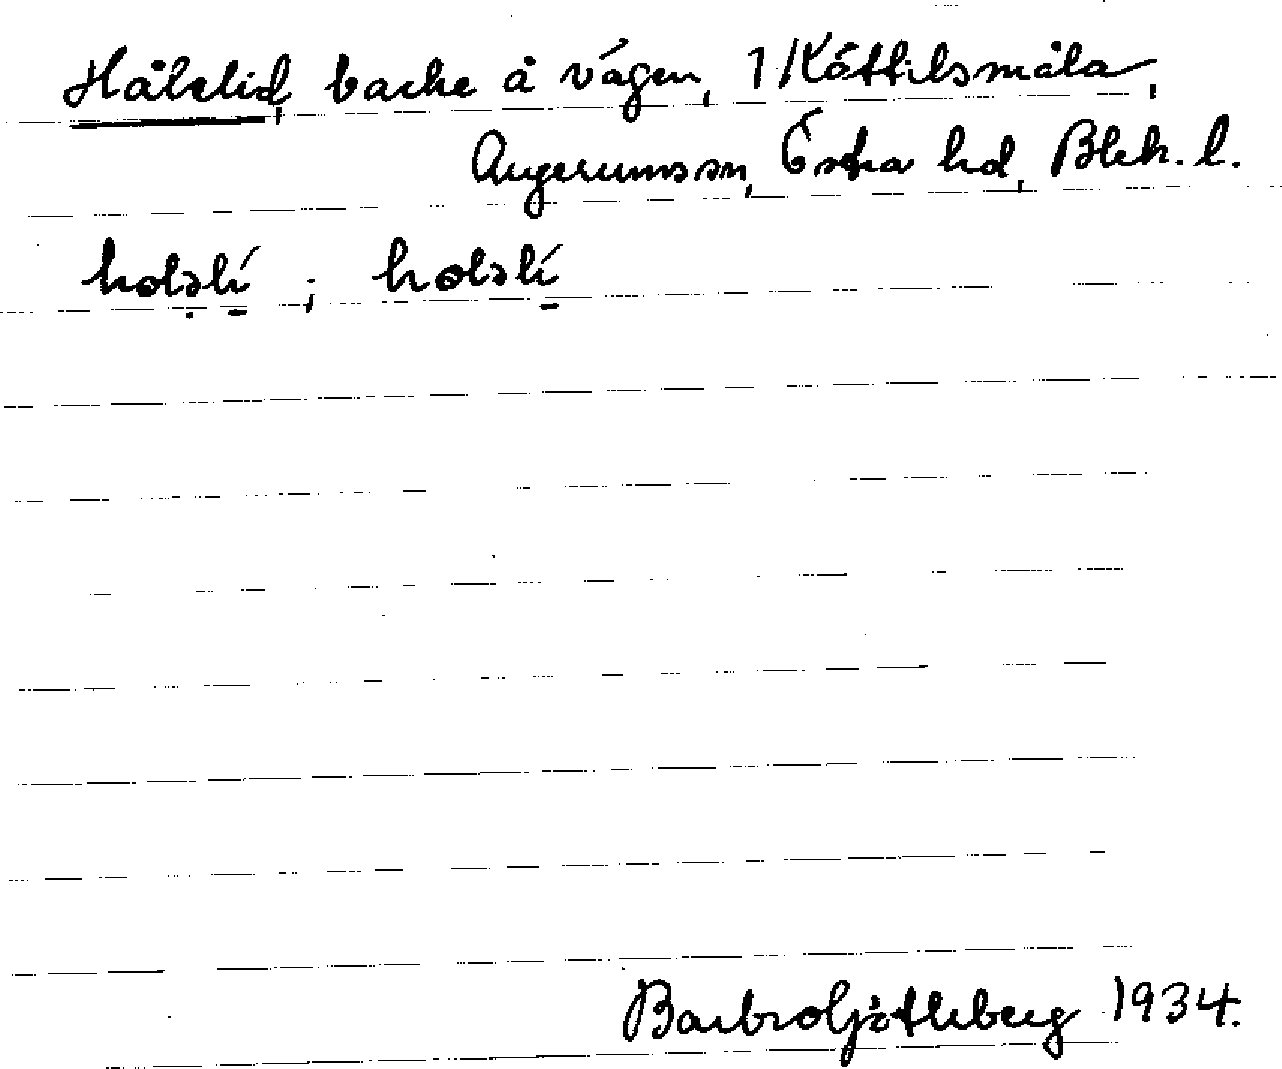 Hålelid, backe å vägen, 1/Kättilsmåla,
Augerumssn, Östra hd, Blek. l.
holəlí ; holəlí
Barbro Ljótheberg 1934.